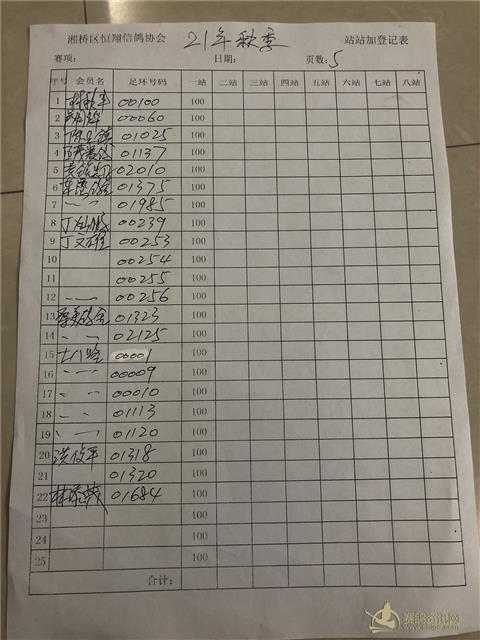 湘桥区恒翔信鸽协会 21年秋季 站站加登记表
赛项: 日期: 页数: 5
序号 会员名 足环号码 一站 二站 三站 四站 五站 六站 七站 八站
1 00100 100
2 00060 100
3 01025 100
4 01137 100
5 02010 100
6 01375 100
7 〃 01985 100
8 00239 100
9 丁文雄 00253 100
10 00254 100
11 00255 100
12 〃 00256 100
13 01323 100
14 〃 02125 100
15 00001 100
16 〃 00009 100
17 〃 00010 100
18 〃 01113 100
19 〃 01120 100
20 洪俊平 01318 100
21 01320 100
22 01684 100
23 100
24 100
25 100
合计:
赛鸽资讯网